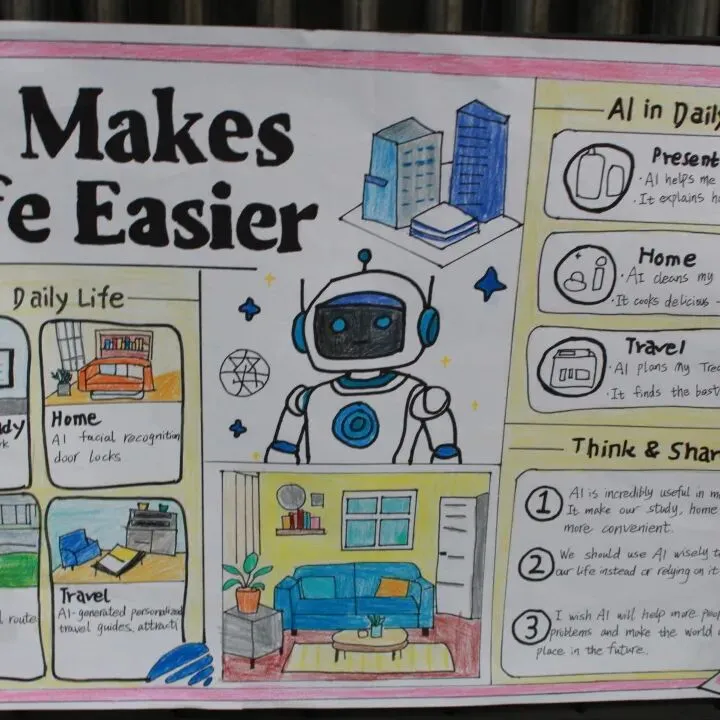 Makes
fe Easier
Daily Life
dy
k
Home
AI facial recognition
door locks
l route
Travel
AI-generated personalized
travel guides, attracti
AI in Daily
Present
· AI helps me
· It explains h
Home
· AI cleans my
· It cooks delicious
Travel
· AI plans my Tra
· It finds the best
Think & Shar
1 AI is incredibly useful in m
It make our study, home
more convenient.
2 We should use AI wisely t
our life instead or relying on it
3 I wish AI will help more peop
problems and make the world a
place in the future.